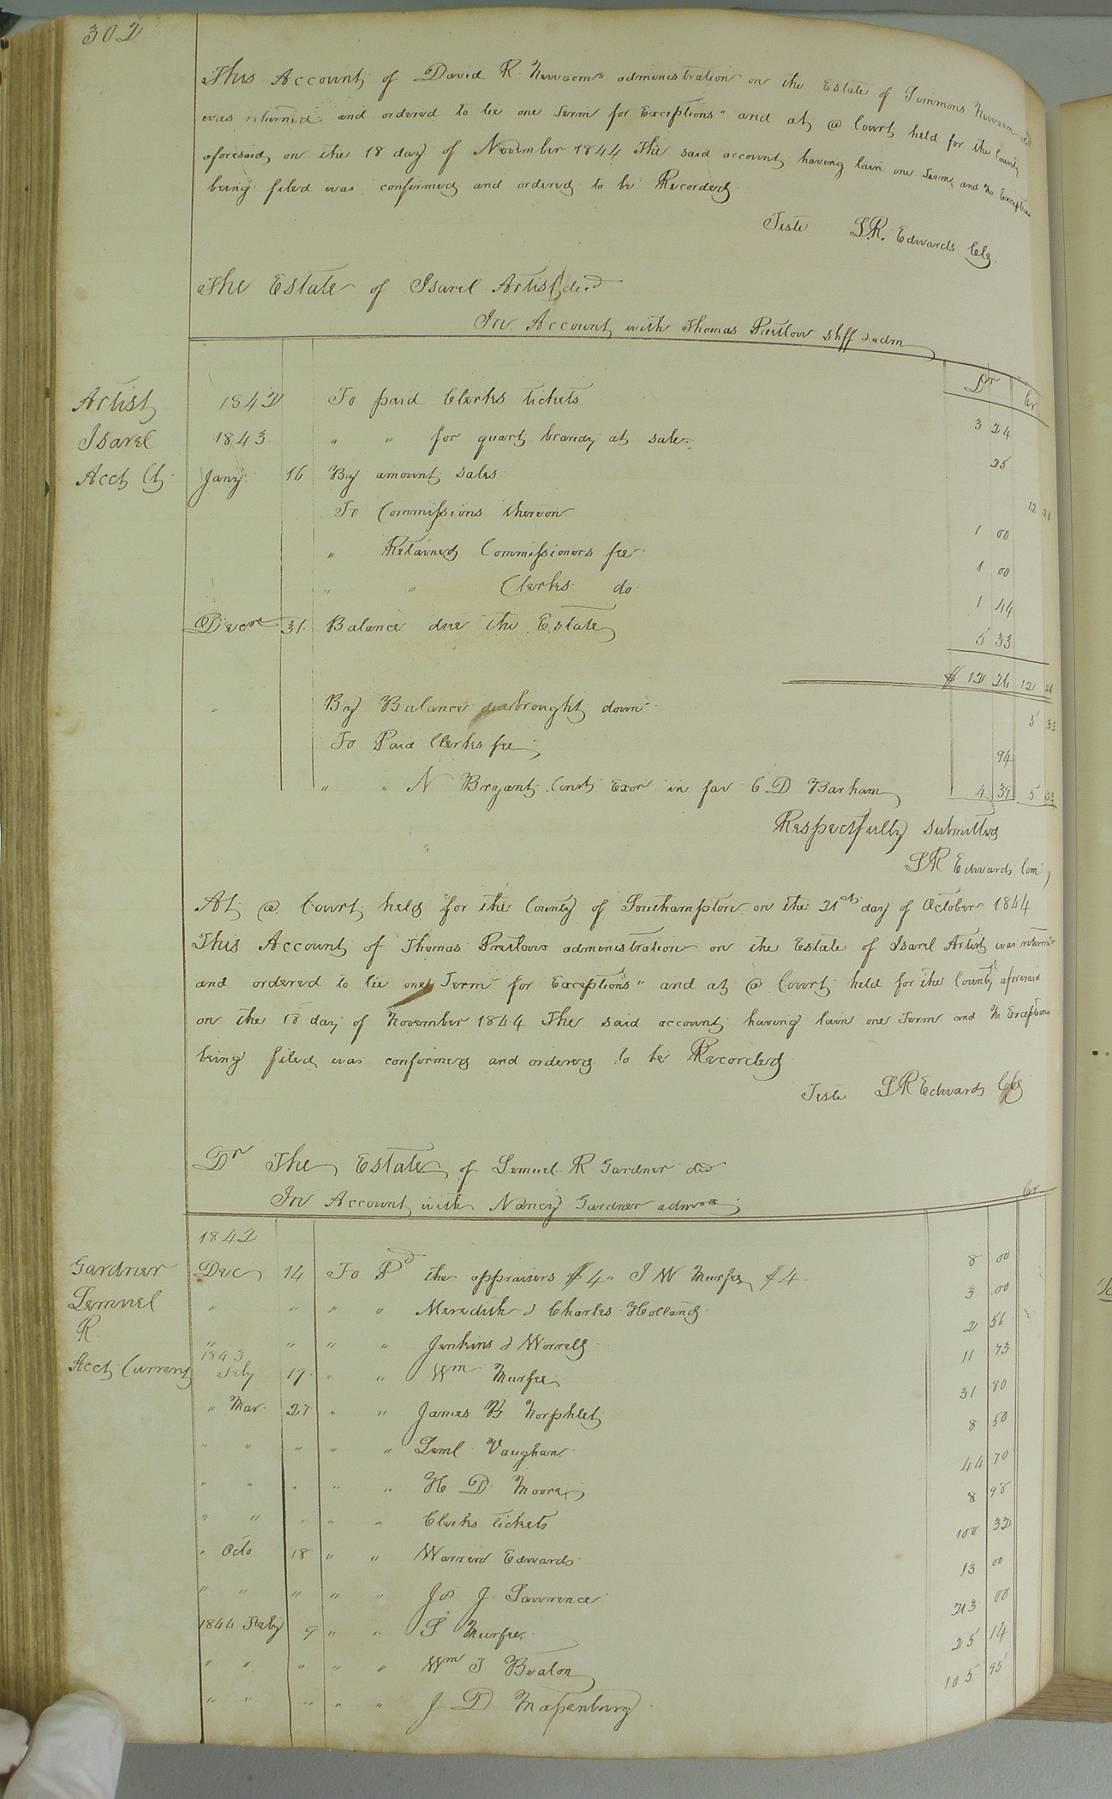 302
This Account of David R. Newsoms administration on the Estate of Simmons Newsom dcd
was returned and ordered to lie one Term for Exceptions" and at @ Court held for the County
aforesaid, on the 18 day of November 1844 The said account having lain one Term and No Exceptions
being filed was confirmed and ordered to be Recorded
Teste L.R. Edwards Clk
The Estate of Isarel Artist decd
In Account with Thomas Pretlow Shff & adm
Dr Cr
Artist 1842 To paid Clerks tickets 3 24
Isarel 1843 " " for quart brandy at sale 25
Acct Ct Jany 16 By amount sales 12 26
To Commissions thereon 1 00
" Retained Commissioners fee 1 00
" " Clerks do 1 44
Decr 31 Balance due the Estate 5 33
$ 12 26 12 26
By Balance brought down 5 33
To Paid Clerks fee 94
" " N Bryant Const Exor in fav C D Barham 4 39 5 33
Respectfully submitted
L R Edwards Com
At @ Court held for the County of Southampton on the 21st day of October 1844
This Account of Thomas Pretlows administration on the Estate of Isarel Artist was returned
and ordered to lie one Term for Exceptions" and at @ Court held for the County aforesaid
on the 18 day of November 1844 The said account having lain one Term and No Exceptions
being filed was confirmed and ordered to be Recorded
Teste L R Edwards Clk
Dr The Estate of Lemuel R Gardner dcd
In Account with Nancy Gardner admrx
Cr
1842
Gardner Dec 14 To Pd the appraisers $4" J W Murfee $4 8 00
Lemuel " " " " Meredith & Charles Holland 3 00
R. " " " " Jenkins & Worrell 2 56
Acct Current 1843 July 19 " " Wm Murfee 11 73
" Mar 27 " " James B Norphlet 31 80
" " " " " Leml Vaughan 8 50
" " " " " H D Moore 44 70
" " " " " Clerks tickets 8 98
" Octo 18 " " Warren Edwards 100 32
" " " " " Js J Lawrence 13 00
1844 Feby 9 " " S Murfee 213 00
" " " " " Wm J Beaton 25 14
" " " " " J D Massenburg 105 95